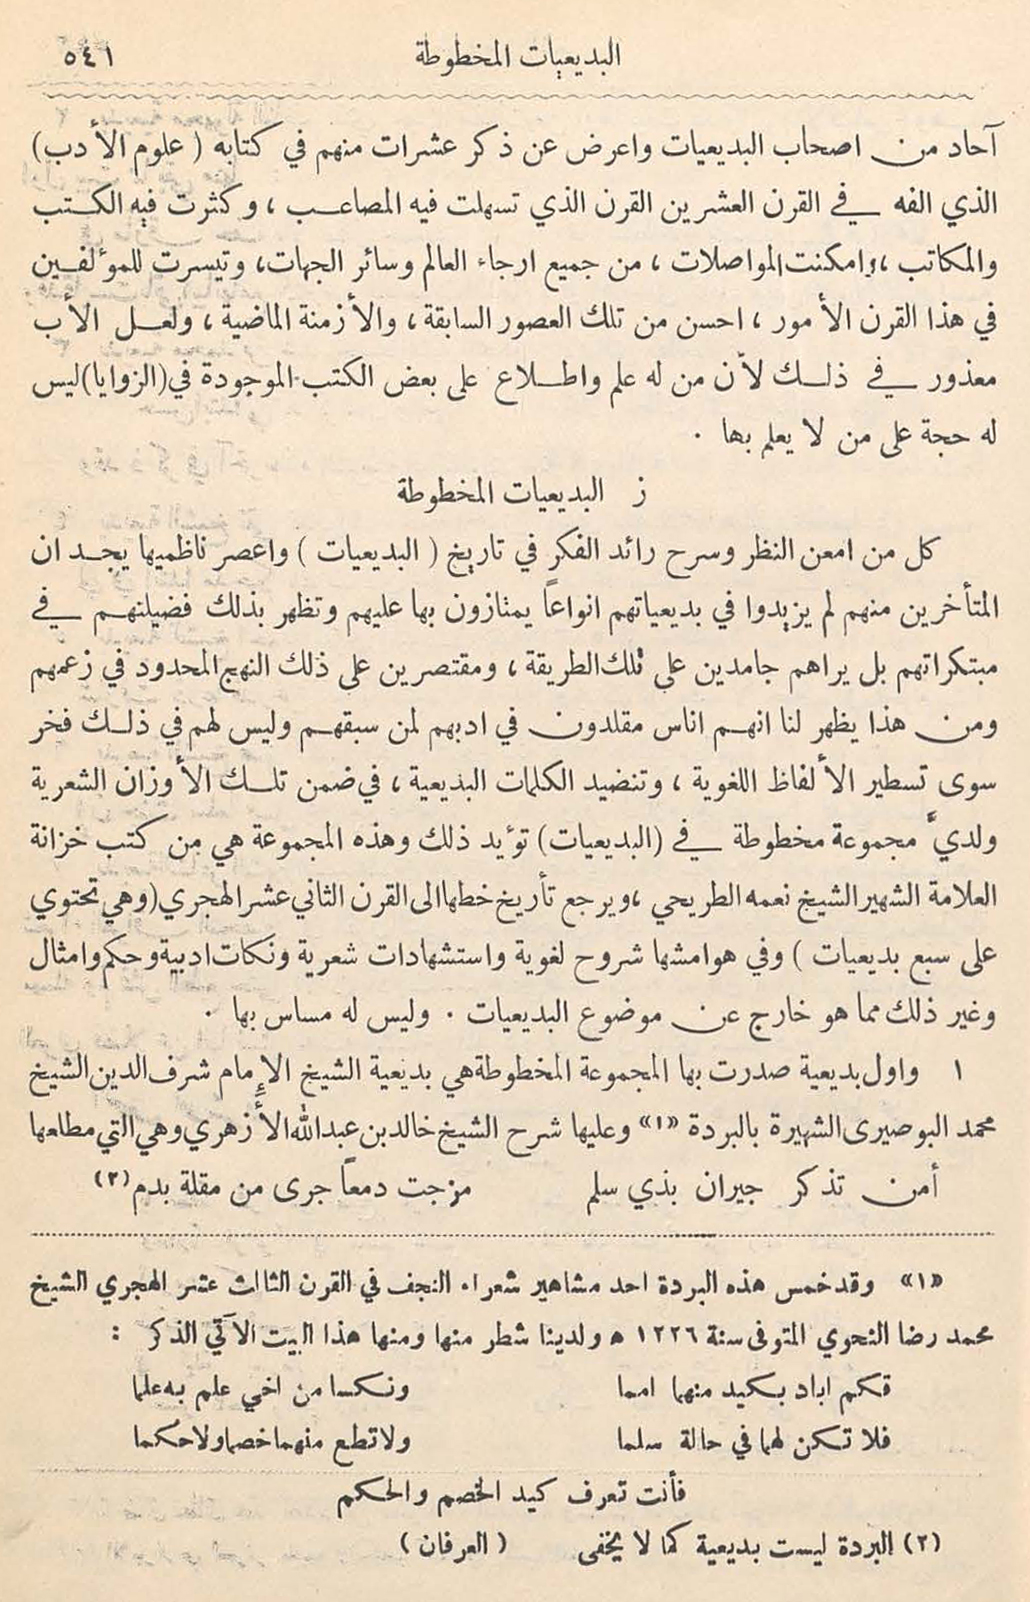 البديعيات المخطوطة
٥٤١
آحاد من اصحاب البديعيات واعرض عن ذكر عشرات منهم في كتابه ( علوم الأدب)
الذي الفه في القرن العشرين القرن الذي تسهلت فيه المصاعب ، وكثرت فيه الكتب
والمكاتب ، وامكنت المواصلات ، من جميع ارجاء العالم وسائر الجهات، وتيسرت للمؤلفين
في هذا القرن الأمور ، احسن من تلك العصور السابقة ، والأزمنة الماضية ، ولعل الأب
معذور في ذلك لأن من له علم واطلاع على بعض الكتب الموجودة في(الزوايا)ليس
له حجة على من لا يعلم بها .
ز البديعيات المخطوطة
كل من امعن النظر وسرح رائد الفكر في تاريخ ( البديعيات ) واعصر ناظميها يجد ان
المتأخرين منهم لم يزيدوا في بديعياتهم انواعاً يمتازون بها عليهم وتظهر بذلك فضيلتهم في
مبتكراتهم بل يراهم جامدين على تلك الطريقة ، ومقتصرين على ذلك النهج المحدود في زعمهم
ومن هذا يظهر لنا انهم اناس مقلدون في ادبهم لمن سبقهم وليس لهم في ذلك فخر
سوى تسطير الألفاظ اللغوية ، وتنضيد الكلمات البديعية ، في ضمن تلك الأوزان الشعرية
ولديَّ مجموعة مخطوطة في (البديعيات) تؤيد ذلك وهذه المجموعة هي من كتب خزانة
العلامة الشهير الشيخ نعمه الطريحي ،ويرجع تأريخ خطها الى القرن الثاني عشر الهجري (وهي تحتوي
على سبع بديعيات ) وفي هوامشها شروح لغوية واستشهادات شعرية ونكات ادبية وحكم وامثال
وغير ذلك مما هو خارج عن موضوع البديعيات . وليس له مساس بها .
١ واول بديعية صدرت بها المجموعة المخطوطة هي بديعية الشيخ الإمام شرف الدين الشيخ
محمد البوصيري الشهيرة بالبردة «١» وعليها شرح الشيخ خالد بن عبدالله الأزهري وهي التي مطلعها
أمن تذكر جيران بذي سلم مزجت دمعاً جرى من مقلة بدم (٢)
«١» وقد خمس هذه البردة احد مشاهير شعراء النجف في القرن الثالث عشر الهجري الشيخ
محمد رضا النحوي المتوفى سنة ١٢٢٦ ه ولدينا شطر منها ومنها هذا البيت الآتي الذكر :
فكم اباد بكيد منهما امما ونكسا من اخي علم به علما
فلا تكن لهما في حالة سلما ولا تطع منهما خصما ولا حكما
فأنت تعرف كيد الخصم والحكم
(٢) البردة ليست بديعية كما لا يخفى ( العرفان )